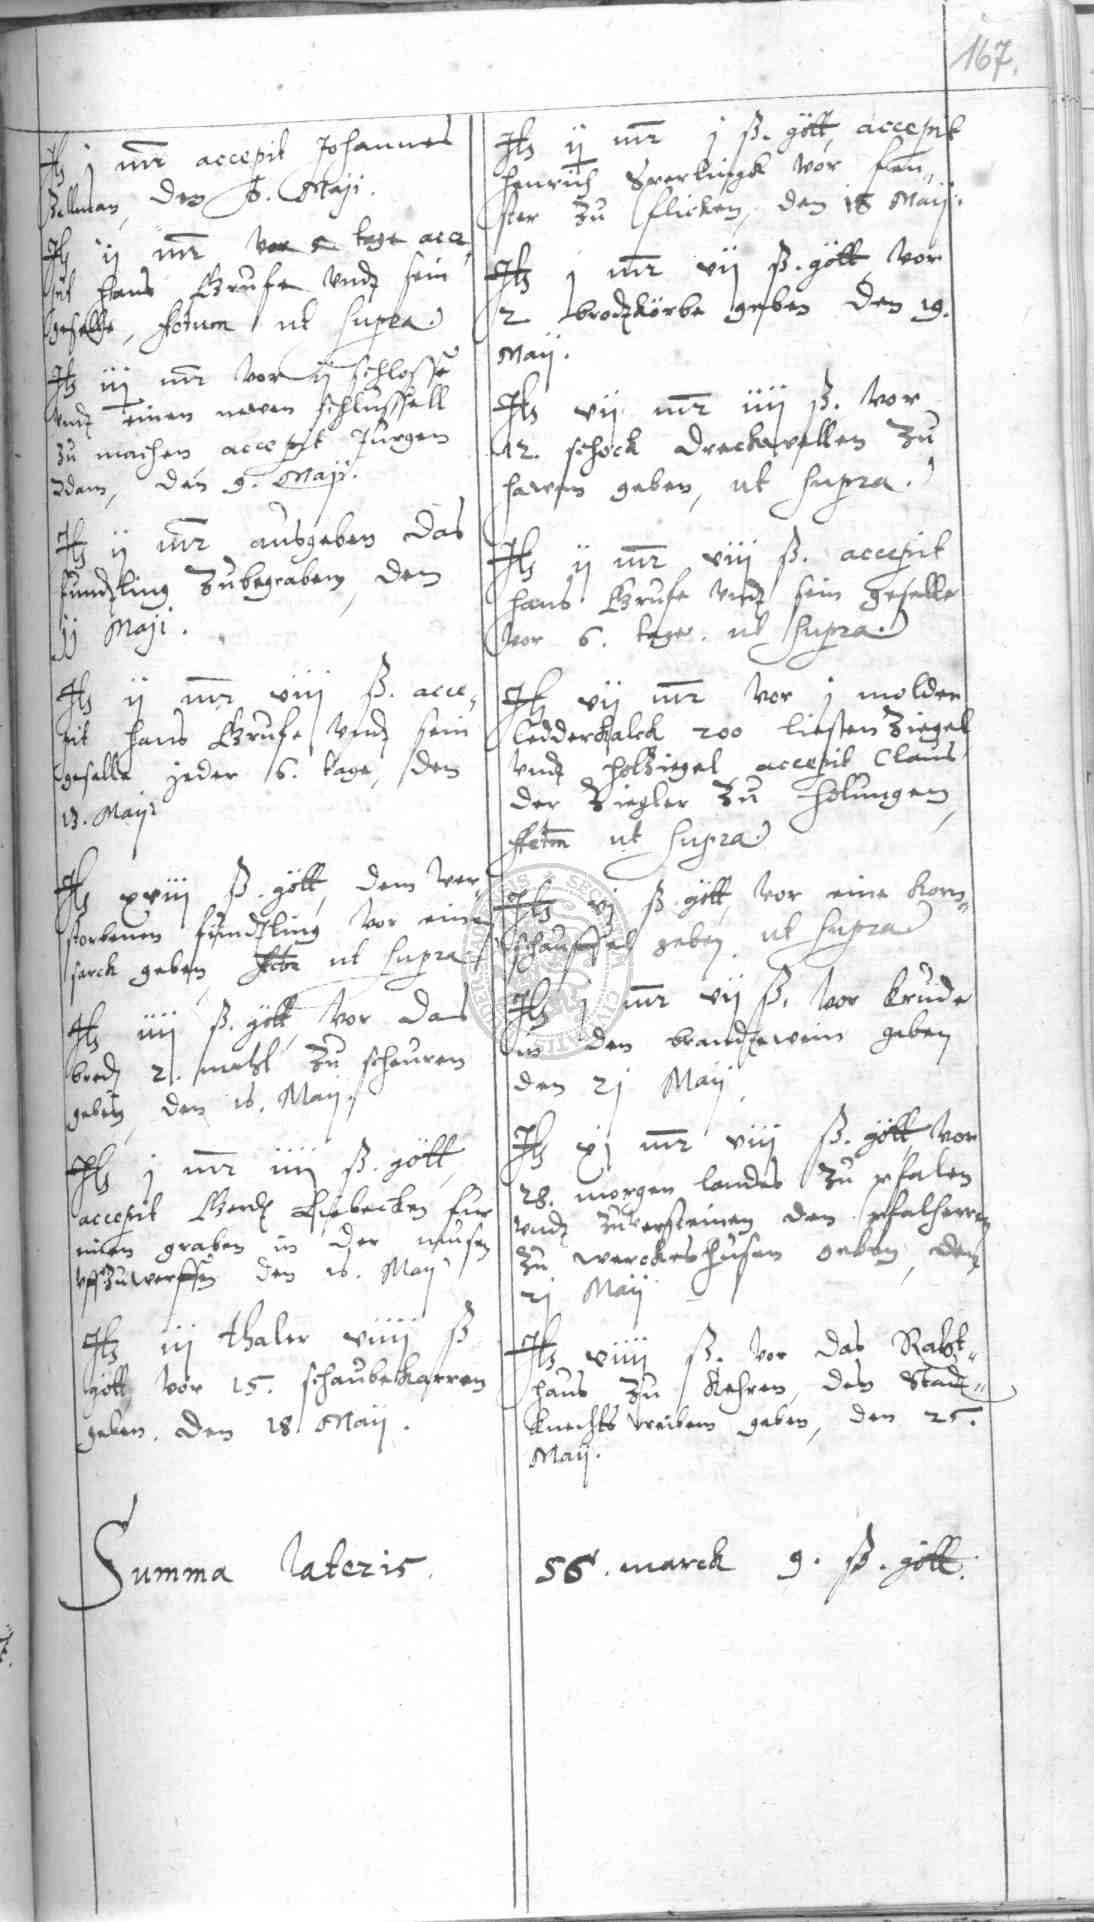 167.
Itz j mr accepit Johannes
Zellman, den 8. Maji.
Itz ij mr vor 5 tage acce„
pit Hans Gruse vndt sein
geselle, factum ut supra.
Itz iij mr vor ij schlosse
vndt einen newen schlussell
zu machen accepit Jurgen
Adam, den 9. Maji.
Itz ij mr ausgeben das
fundtling zubegraben, den
jj Maji.
Itz ij mr viij ß. acce„
pit Hans Gruse vndt sein
geselle jeder 6. tage, den
13. Maji
Itz xviij ß. gött, dem ver„
storbenen fundtling vor eine
sarck geben, factum ut supra.
Itz iiij ß. gött, vor das
bredt 2. mahl zu scheuren
geben, den 16. Maij.
Itz j mr iiij ß. gött,
accepit Gerdt Liebecken fur
einen graben in der
uffzuwerffen den 16. Maij
Itz iij thaler xviiij ß
gött vor 15. schaubekarren
geben. den 18 Maij.
Itz ij mr j ß. gött, accepit
Henrich vor fen„
ster zu flicken, den 18 Maij.
Itz j mr vij ß. gött, vor
2 brodtkörbe geben den 19.
Maij.
Itz vij mr iiij ß. vor
12. schock dreckwellen zu
hawen geben, ut supra.
Itz ij mr viij ß. accepit
Hans Gruse vndt sein geselle
vor 6. tage. ut supra.
Itz vij mr vor j molder
ledderkalck 200 liesten Ziegel
vndt holziegel accepit Claus
der Ziegler zu Holungen,
factum ut supra.
Itz vj ß. gött, vor eine Korn„
schauffel geben. ut supra
Itz j mr vij ß. vor krude
in den brandtewein geben
den 2j Maij.
Itz xj mr viij ß. gött, vor
28. morgen landes zu pfalen
vndt zuversteinen den pfalherren
zu werckeshusen geben, den
2j Maij
Itz xviiij ß. vor das Raht„
haus zu kehren, den Stadt„
knechts weibern geben, den 25.
Maij.
Summa lateris. 56. marck 9. ß. gött.